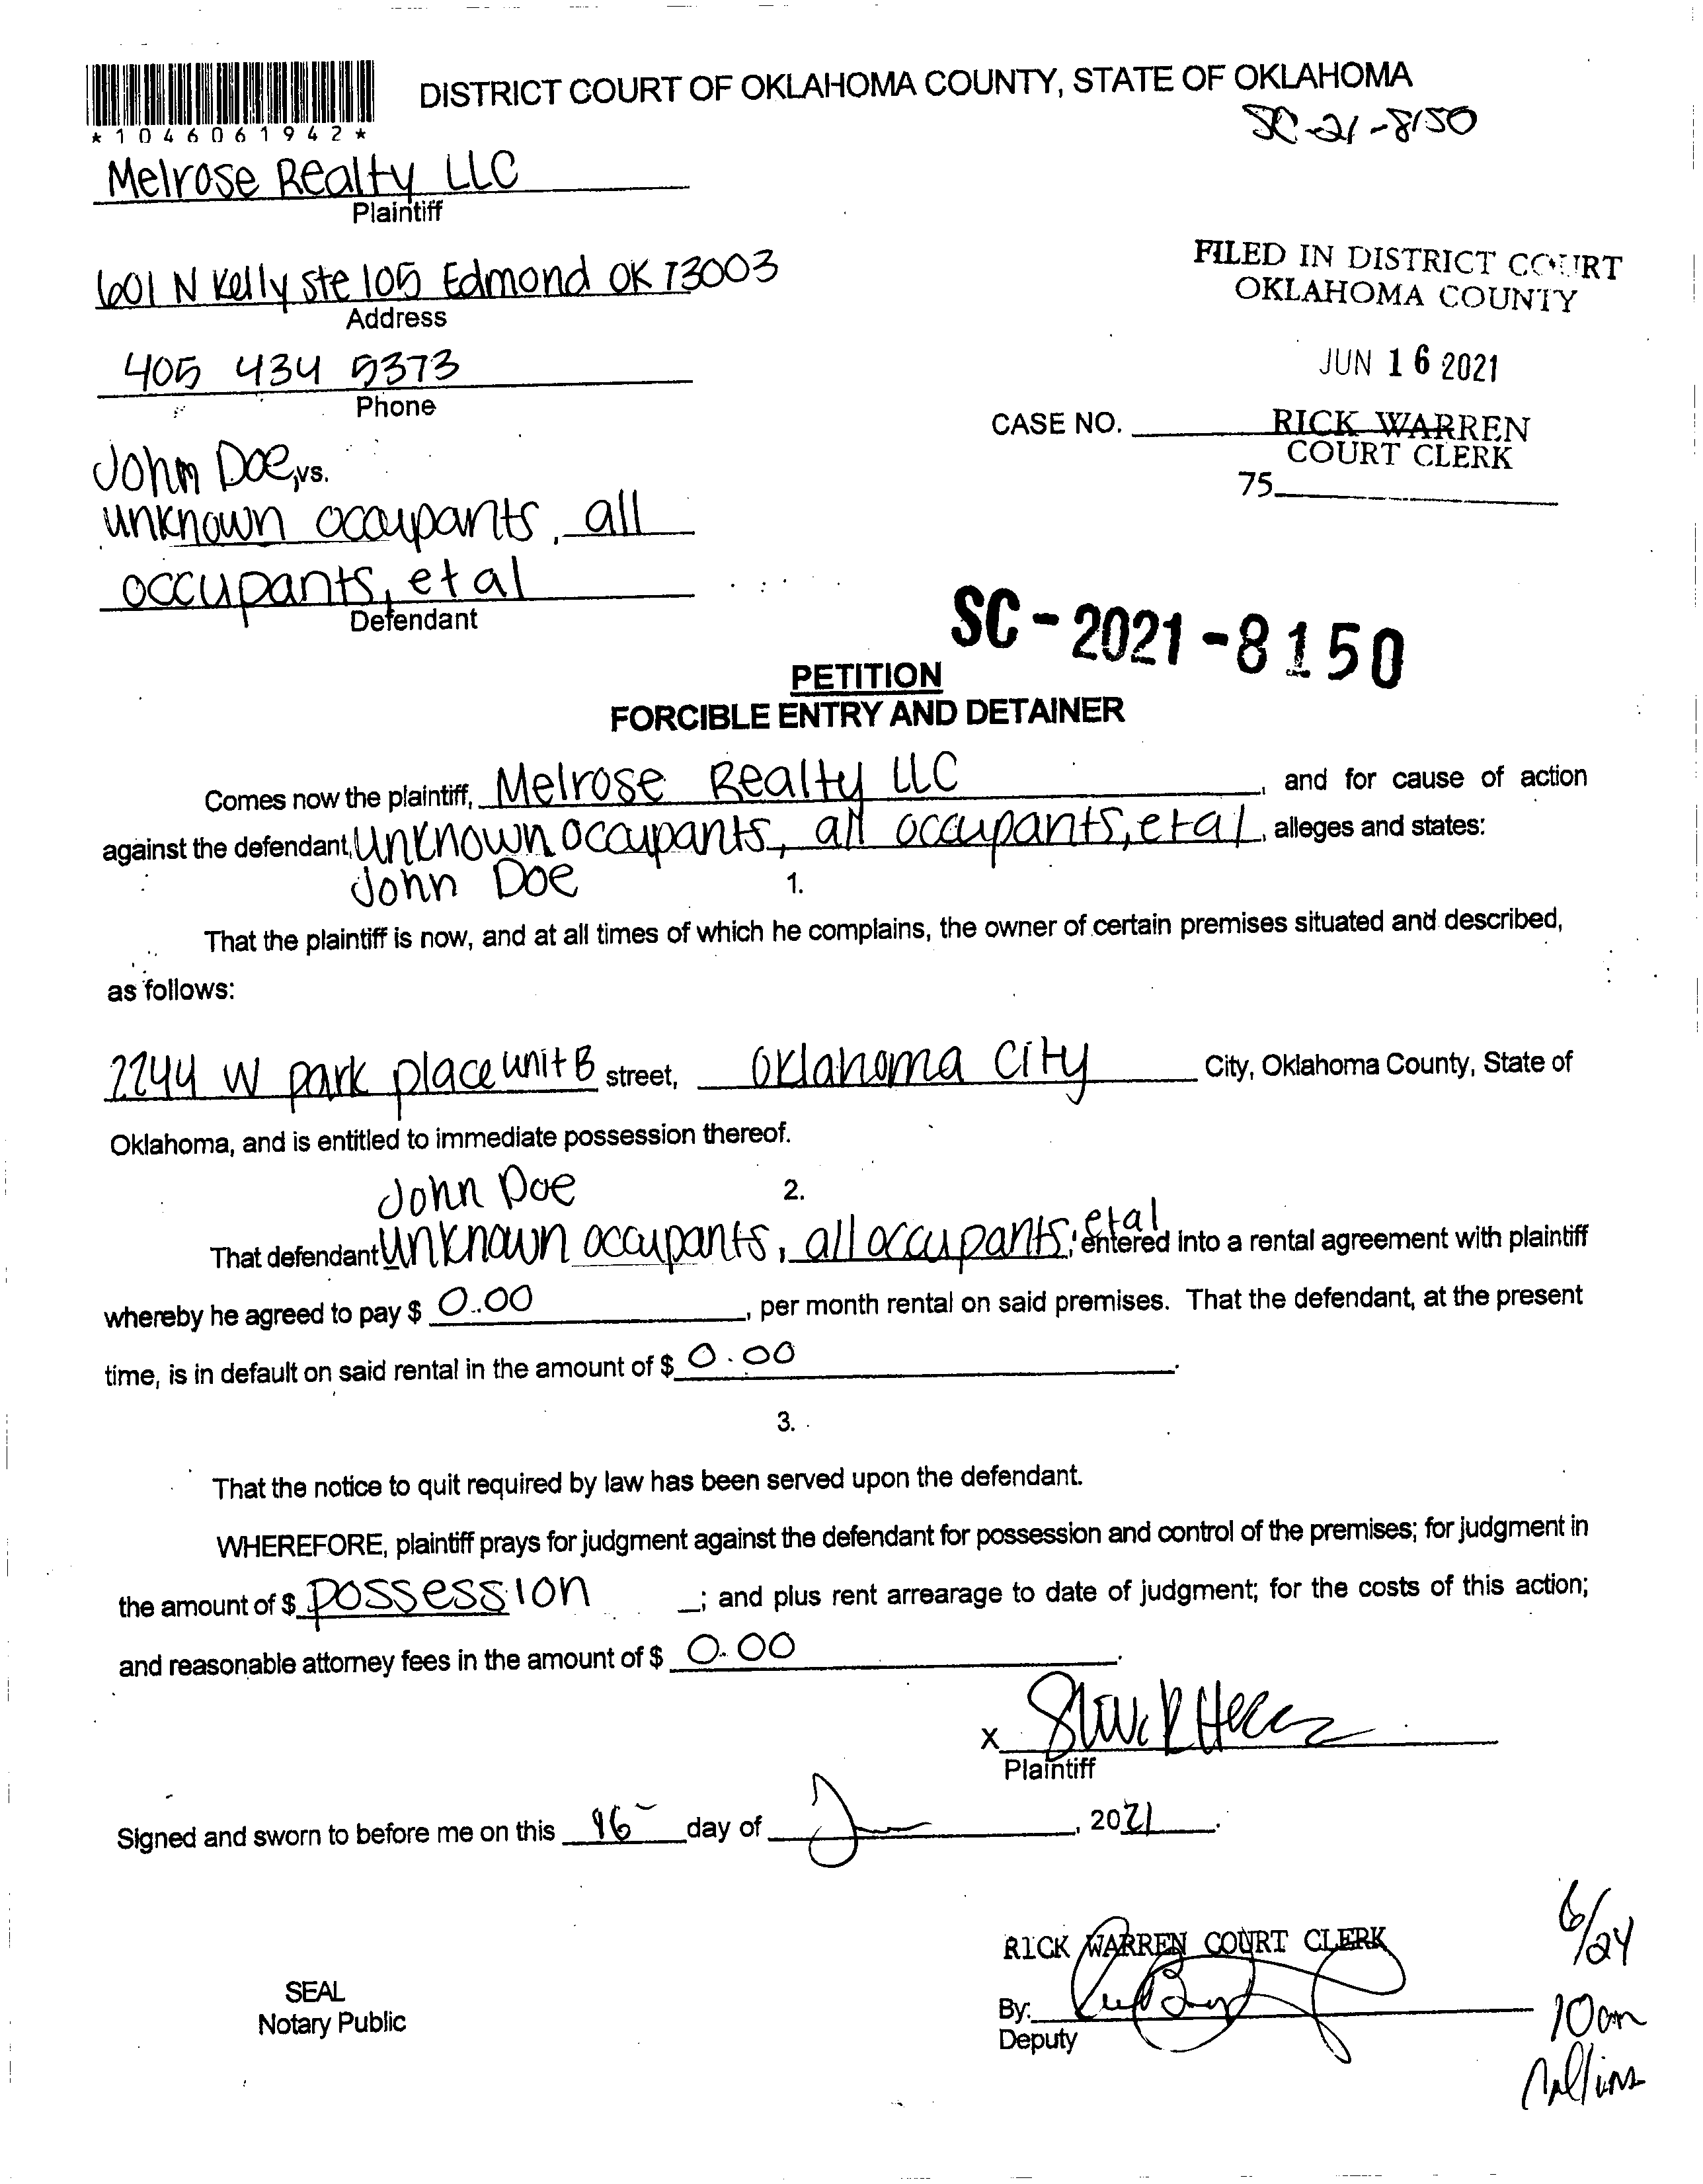 DISTRICT COURT OF OKLAHOMA COUNTY, STATE OF OKLAHOMA
*1046061942*
SC-21-8150
Melrose Realty LLC
Plaintiff
601 N Kelly Ste 105 Edmond OK 73003
Address
FILED IN DISTRICT COURT
OKLAHOMA COUNTY
JUN 16 2021
405 434 5373
Phone
CASE NO.
RICK WARREN
COURT CLERK
75
John Doe, vs.
unknown occupants, all
occupants, et al
Defendant
SC-2021-8150
PETITION
FORCIBLE ENTRY AND DETAINER
Comes now the plaintiff, Melrose Realty LLC, and for cause of action
against the defendant, Unknown occupants, all occupants, et al, alleges and states:
John Doe
1.
That the plaintiff is now, and at all times of which he complains, the owner of certain premises situated and described,
as follows:
2244 W park place unit B street, Oklahoma City City, Oklahoma County, State of
Oklahoma, and is entitled to immediate possession thereof.
John Doe
2.
That defendant Unknown occupants, all occupants, et al entered into a rental agreement with plaintiff
whereby he agreed to pay $ 0.00, per month rental on said premises. That the defendant, at the present
time, is in default on said rental in the amount of $ 0.00.
3.
That the notice to quit required by law has been served upon the defendant.
WHEREFORE, plaintiff prays for judgment against the defendant for possession and control of the premises; for judgment in
the amount of $ possession; and plus rent arrearage to date of judgment; for the costs of this action;
and reasonable attorney fees in the amount of $ 0.00.
X
Plaintiff
Signed and sworn to before me on this 16 day of Jun, 2021.
RICK WARREN COURT CLERK
6/24
SEAL
Notary Public
By:
Deputy
10am